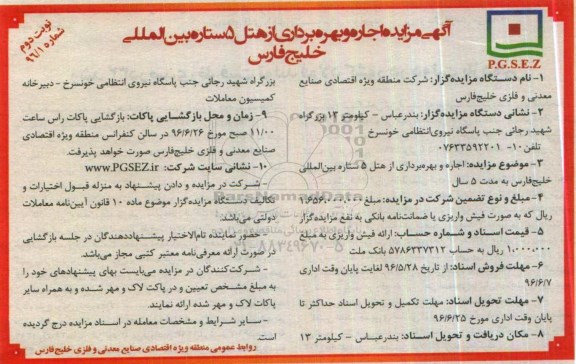 آگهی مزایده اجاره و بهره برداری از هتل ۵ ستاره بین المللی
خلیج فارس
نوبت دوم
شماره ۹۶/۱
P.G.S.E.Z
۱- نام دستگاه مزایده گزار: شرکت منطقه ویژه اقتصادی صنایع
معدنی و فلزی خلیج فارس
۲- نشانی دستگاه مزایده گزار: بندرعباس - کیلومتر ۱۳ بزرگراه
شهید رجائی جنب پاسگاه نیروی انتظامی خونسرخ
تلفن ۱۰- ۰۷۶۳۳۵۹۲۲۰۱
۳- موضوع مزایده: اجاره و بهره برداری از هتل ۵ ستاره بین المللی
خلیج فارس به مدت ۵ سال
۴- مبلغ و نوع تضمین شرکت در مزایده: مبلغ
ریال که به صورت فیش واریزی یا ضمانت نامه بانکی به نفع مزایده گزار
۵- قیمت اسناد و شماره حساب: ارائه فیش واریزی به مبلغ
۱،۰۰۰،۰۰۰ ریال به حساب ۵۷۸۶۳۳۷۳۱۲ بانک ملت
۶- مهلت فروش اسناد: از تاریخ ۹۶/۵/۲۸ لغایت پایان وقت اداری
۹۶/۶/۷
۷- مهلت تحویل اسناد: مهلت تکمیل و تحویل اسناد حداکثر تا
پایان وقت اداری مورخ ۹۶/۶/۲۵
۸- مکان دریافت و تحویل اسناد: بندرعباس - کیلومتر ۱۳
بزرگراه شهید رجائی جنب پاسگاه نیروی انتظامی خونسرخ - دبیرخانه
کمیسیون معاملات
۹- زمان و محل بازگشایی پاکات: بازگشایی پاکات راس ساعت
۱۱/۰۰ صبح مورخ ۹۶/۶/۲۶ در سالن کنفرانس منطقه ویژه اقتصادی
صنایع معدنی و فلزی خلیج فارس صورت خواهد پذیرفت.
۱۰- نشانی سایت شرکت: www.PGSEZ.ir
- شرکت در مزایده و دادن پیشنهاد به منزله قبول اختیارات و
تکالیف دستگاه مزایده گزار موضوع ماده ۱۰ قانون آیین نامه معاملات
دولتی می باشد.
- حضور نماینده تام الاختیار پیشنهاددهندگان در جلسه بازگشایی
در صورت ارائه معرفی نامه معتبر کتبی مجاز می باشد.
- شرکت کنندگان در مزایده می بایست بهای پیشنهادهای خود را
به مبلغ مشخص تعیین و در پاکت لاک و مهر شده و به همراه سایر
پاکات لاک و مهر شده ارائه نمایند.
- سایر شرایط و مشخصات معامله در اسناد مزایده درج گردیده
است.
روابط عمومی منطقه ویژه اقتصادی صنایع معدنی و فلزی خلیج فارس